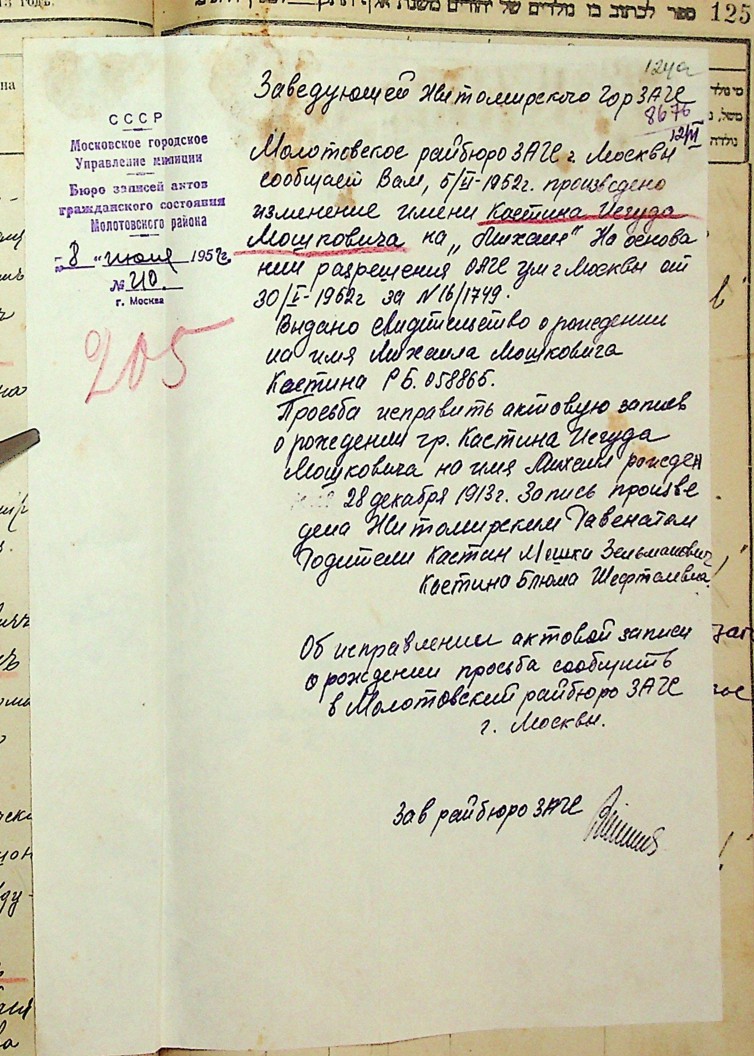 ספר לכתוב בו נולדים של יהודים משנת אלף 125
124а
Заведующей Житомирского ГорЗАГС
8676
12/VI
СССР
Московское городское
Управление милиции
Бюро записей актов
гражданского состояния
Молотовского района
"8" июля 1952г.
№ 210
г. Москва
205
Молотовское райбюро ЗАГС г Москвы
сообщает Вам, 5/VI-1952г. произведено
изменение имени Кастина Иегуда
Мошковича на „Михаил" На основа
нии разрешения ОАГС УМ г Москвы от
30/V-1952г за №16/1749.
Выдано свидетельство о рождении
на имя Михаила Мошковича
Кастина РБ. 058865.
Просьба исправить актовую запись
о рождении гр. Кастина Иегуда
Мошковича на имя Михаил рожден
28 декабря 1913г. Запись произве
дена Житомирским Равенатом
Родители Кастин Мошка Зельманович
Кастина Блюма Шефтелевна
Об исправлении актовой записи
о рождении просьба сообщить
в Молотовский райбюро ЗАГС
г. Москвы.
Зав райбюро ЗАГС